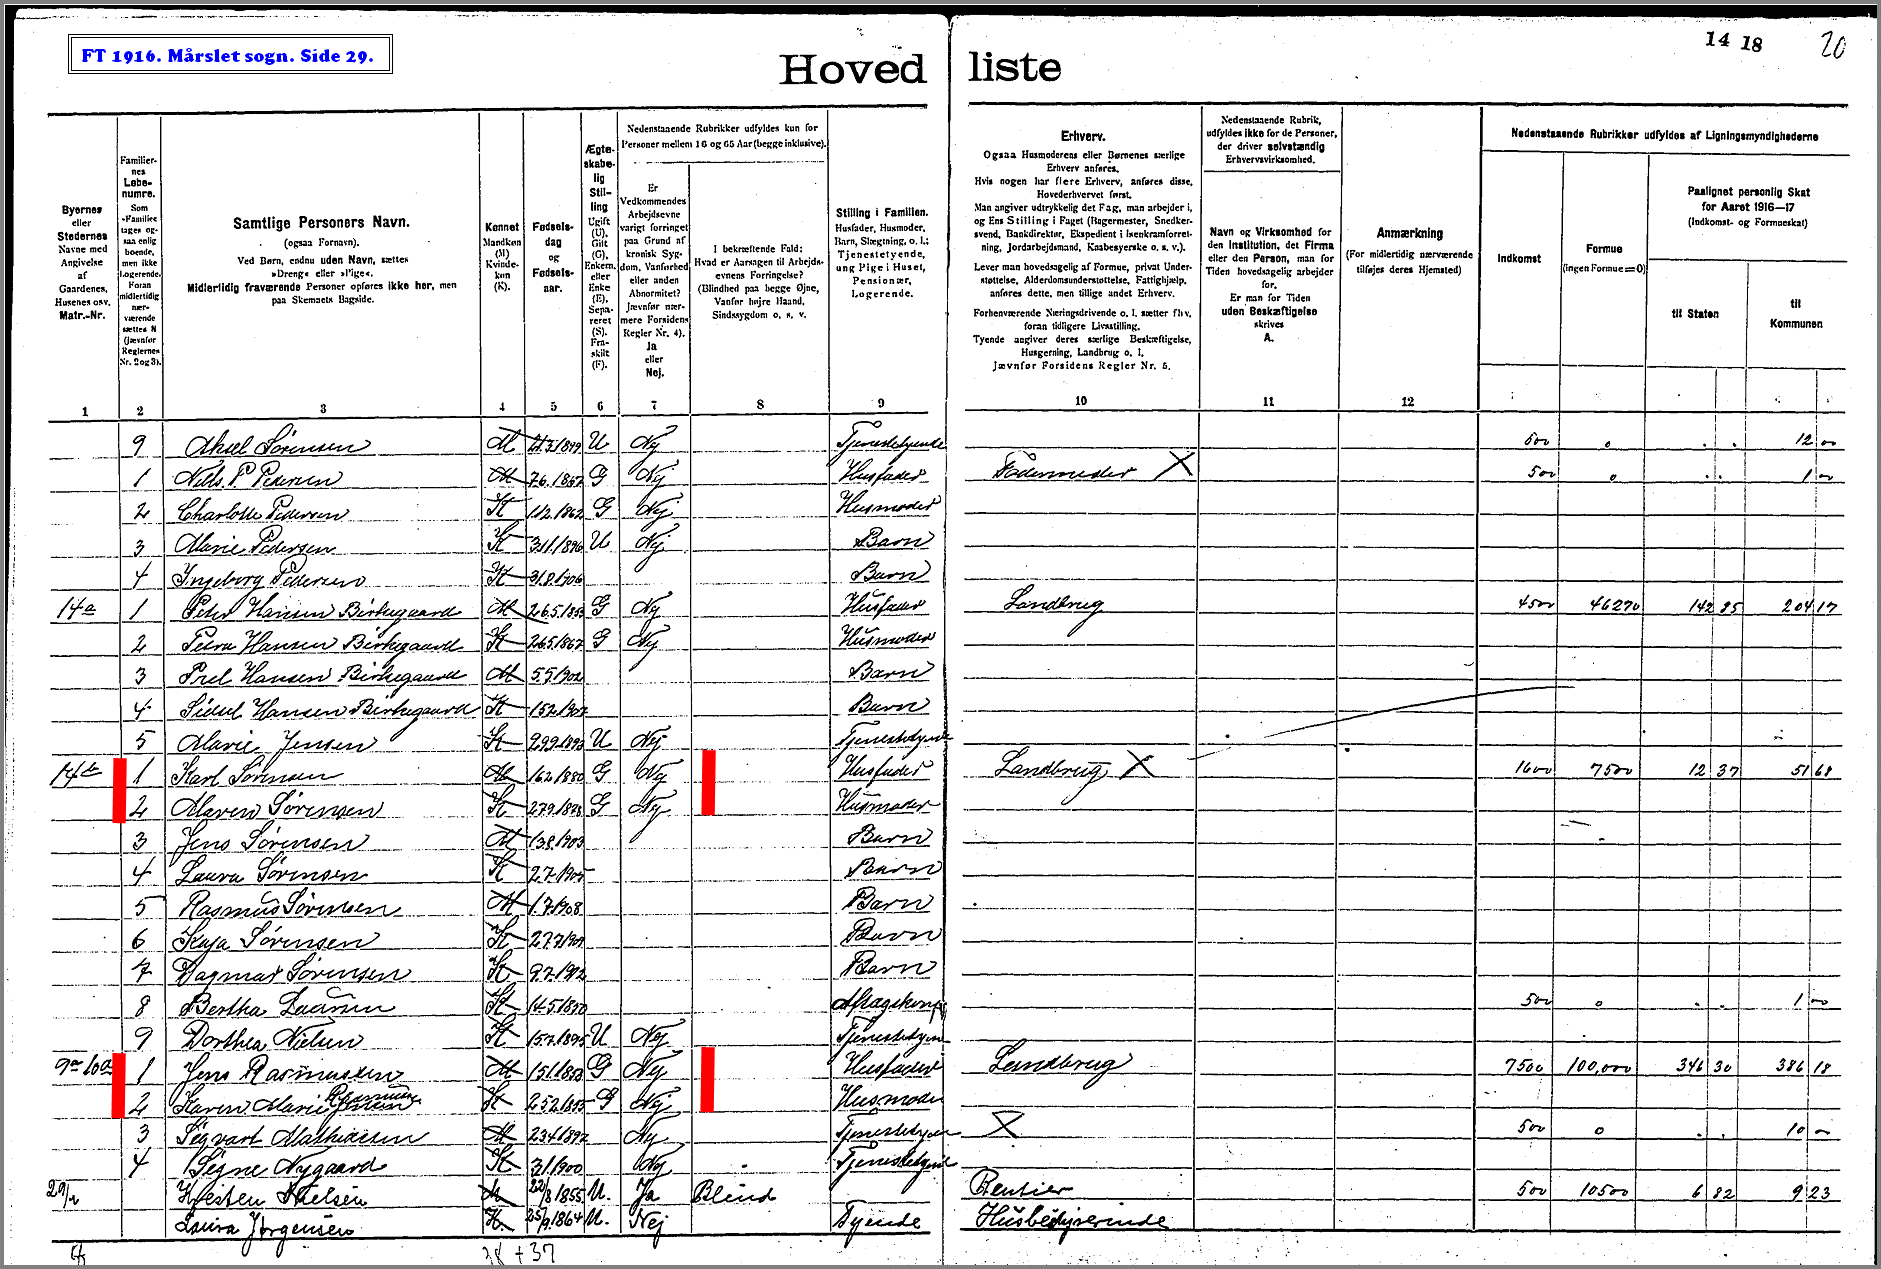 FT 1916. Mårslet sogn. Side 29.
14 18
20
Hovedliste
Byernes
eller
Stedernes
Navne med
Angivelse
af
Gaardenes,
Husenes osv.
Matr.-Nr.
Familier-
nes
Løbe-
numre.
Som
»Familie«
tages og-
saa enlig
boende,
men ikke
Logerende.
Foran
midlertidig
nær-
værende
sættes N
(jævnfør
Reglernes
Nr. 2 og 3).
Samtlige Personers Navn.
(ogsaa Fornavn).
Ved Børn, endnu uden Navn, sættes
»Dreng« eller »Pige«.
Midlertidig fraværende Personer opføres ikke her, men
paa Skemaets Bagside.
Kønnet
Mandkøn
(M)
Kvinde-
køn
(K).
Fødsels-
dag
og
Fødsels-
aar.
Ægte-
skabe-
lig
Stil-
ling
Ugift
(U).
Gift
(G).
Enkem.
eller
Enke
(E).
Sepa-
reret
(S).
Fra-
skilt
(F).
Nedenstaaende Rubrikker udfyldes kun for
Personer mellem 16 og 65 Aar (begge inklusive).
Er
Vedkommendes
Arbejdsevne
varigt forringet
paa Grund af
kronisk Syg-
dom, Vanførhed
eller anden
Abnormitet?
Jævnfør nær-
mere Forsidens
Regler Nr. 4).
Ja
eller
Nej.
I bekræftende Fald:
Hvad er Aarsagen til Arbejds-
evnens Forringelse?
(Blindhed paa begge Øjne,
Vanfør højre Haand,
Sindssygdom o. s. v.
Stilling i Familien.
Husfader, Husmoder,
Barn, Slægtning, o. l.;
Tjenestetyende,
ung Pige i Huset,
Pensionær,
Logerende.
Erhverv.
Ogsaa Husmoderens eller Børnenes særlige
Erhverv anføres.
Hvis nogen har flere Erhverv, anføres disse,
Hovederhvervet først.
Man angiver udtrykkelig det Fag, man arbejder i,
og Ens Stilling i Faget (Bagermester, Snedker-
svend, Bankdirektør, Ekspedient i Isenkramforret-
ning, Jordarbejdsmand, Kaabesyerske o. s. v.).
Lever man hovedsagelig af Formue, privat Under-
støttelse, Alderdomsunderstøttelse, Fattighjælp,
anføres dette, men tillige andet Erhverv.
Forhenværende Næringsdrivende o. l. sætter fhv.
foran tidligere Livsstilling.
Tyende angiver deres særlige Beskæftigelse,
Husgerning, Landbrug o. l.
Jævnfør Forsidens Regler Nr. 5.
Nedenstaaende Rubrik,
udfyldes ikke for de Personer,
der driver selvstændig
Erhvervsvirksomhed.
Navn og Virksomhed for
den Institution, det Firma
eller den Person, man for
Tiden hovedsagelig arbejder
for.
Er man for Tiden
uden Beskæftigelse
skrives
A.
Anmærkning
(For midlertidig nærværende
tilføjes deres Hjemsted)
Nedenstaaende Rubrikker udfyldes af Ligningsmyndighederne
Indkomst
Formue
(ingen Formue=0)
Paalignet personlig Skat
for Aaret 1916—17
(Indkomst- og Formueskat)
til Staten
til
Kommunen
1 2 3 4 5 6 7 8 9 10 11 12
9 Aksel Sørensen M 1899 U Nej Tjenestetyende 500 0 12 00
1 Niels P Pedersen M 7.6.1862 G Nej Husfader Fodermester X 500 0 1 00
2 Charlotte Pedersen K 1862 G Nej Husmoder
3 Marie Pedersen K 3.11.1896 U Nej Barn
4 Ingeborg Pedersen K 31.8.1906 Barn
14a 1 Peter Hansen Birkegaard M 26.5.1853 G Nej Husfader Landbrug 4500 46270 142 85 204 17
2 Petra Hansen Birkegaard K 26.5.1867 G Nej Husmoder
3 Hansen Birkegaard M 1902 Barn
4 Hansen Birkegaard K 15.2.1907 Barn
5 Marie Jensen K 29.9.1893 U Nej Tjenestetyende
14b 1 Karl Sørensen M 16.2.1880 G Nej Husfader Landbrug X 1600 7500 12 37 51 68
2 Maren Sørensen K 27.9.1878 G Nej Husmoder
3 Jens Sørensen M 13.8.1903 Barn
4 Laura Sørensen K 2.7.1905 Barn
5 Rasmus Sørensen M 1.7.1908 Barn
6 Kaja Sørensen K 27.7.1909 Barn
7 Dagmar Sørensen K 9.7.1912 Barn
8 Bertha Laursen K 14.5.1850 Aftægtskone 500 0 1 00
9 Dorthea Nielsen K 15.7.1895 U Nej Tjenestetyende
9a 10a 1 Jens Rasmussen M 15.1.1853 G Nej Husfader Landbrug 7500 100,000 346 30 386 18
2 Karen Marie Rasmussen K 25.2.1855 G Nej Husmoder
3 Sigvart Mathiassen M 23.4.1892 Nej Tjenestetyende X 500 0 10 00
4 Signe Nygaard K 3.1.1900 Nej Tjenestetyende
29/2 Kresten Nielsen M 22/8 1855 U. Ja Blind Rentier 500 10500 6 82 9 23
Laura Jørgensen K. 25/9 1864 U. Nej Tyende Husbestyrerinde
38 + 37